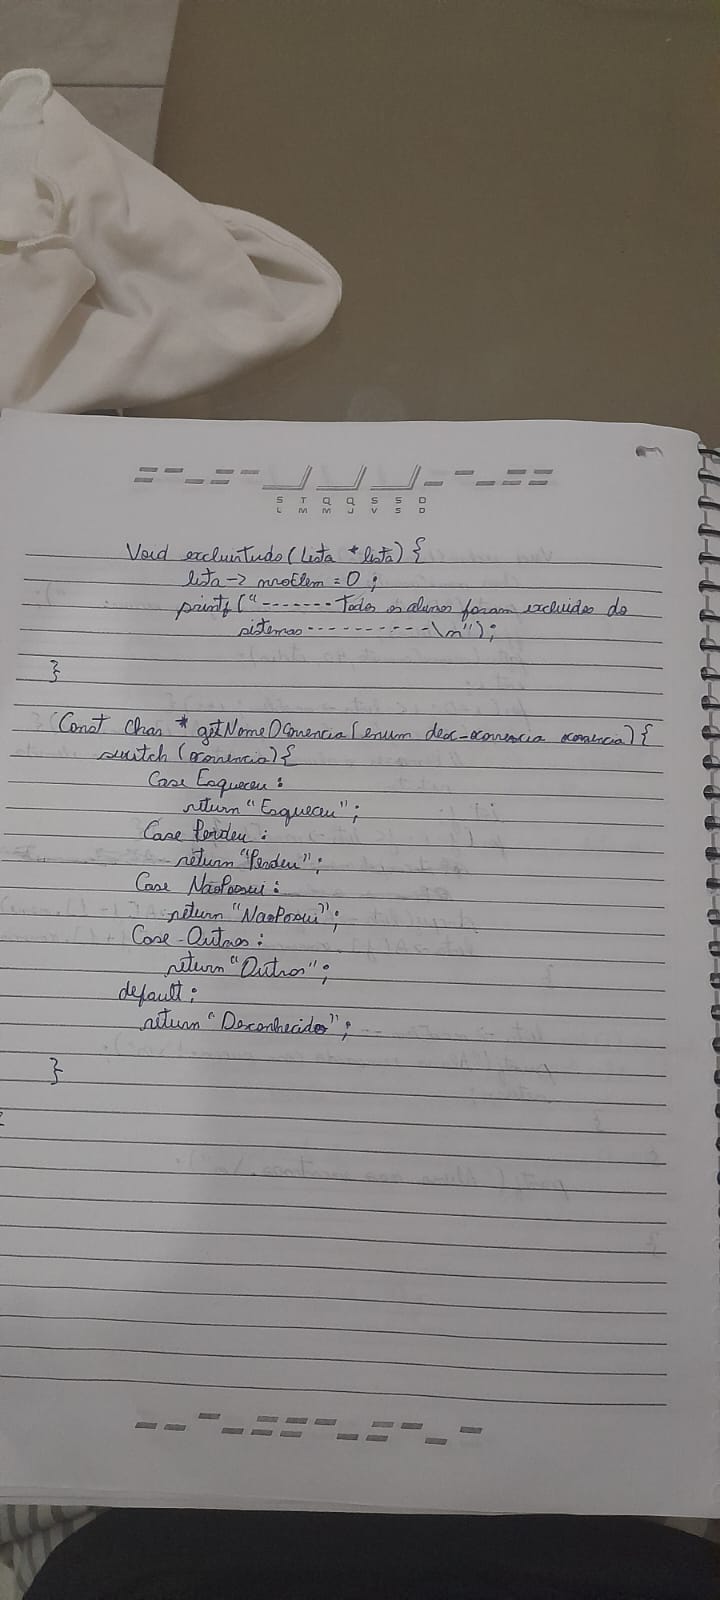 S T Q Q S S D
L M M J V S D
Void excluirtudo(Lista *lista) {
lista-> nroElem = 0;
printf("------- Todos os alunos foram excluidos do
sistemas ----------\n");
}
Const Char * getNomeOcorrencia(enum desc-ocorrencia ocorrencia){
switch (ocorrencia){
Case Esqueceu:
return "Esqueceu";
Case Perdeu:
return "Perdeu";
Case NaoPossui:
return "NaoPossui";
Case Outros:
return "Outros";
default:
return "Desconhecido";
}